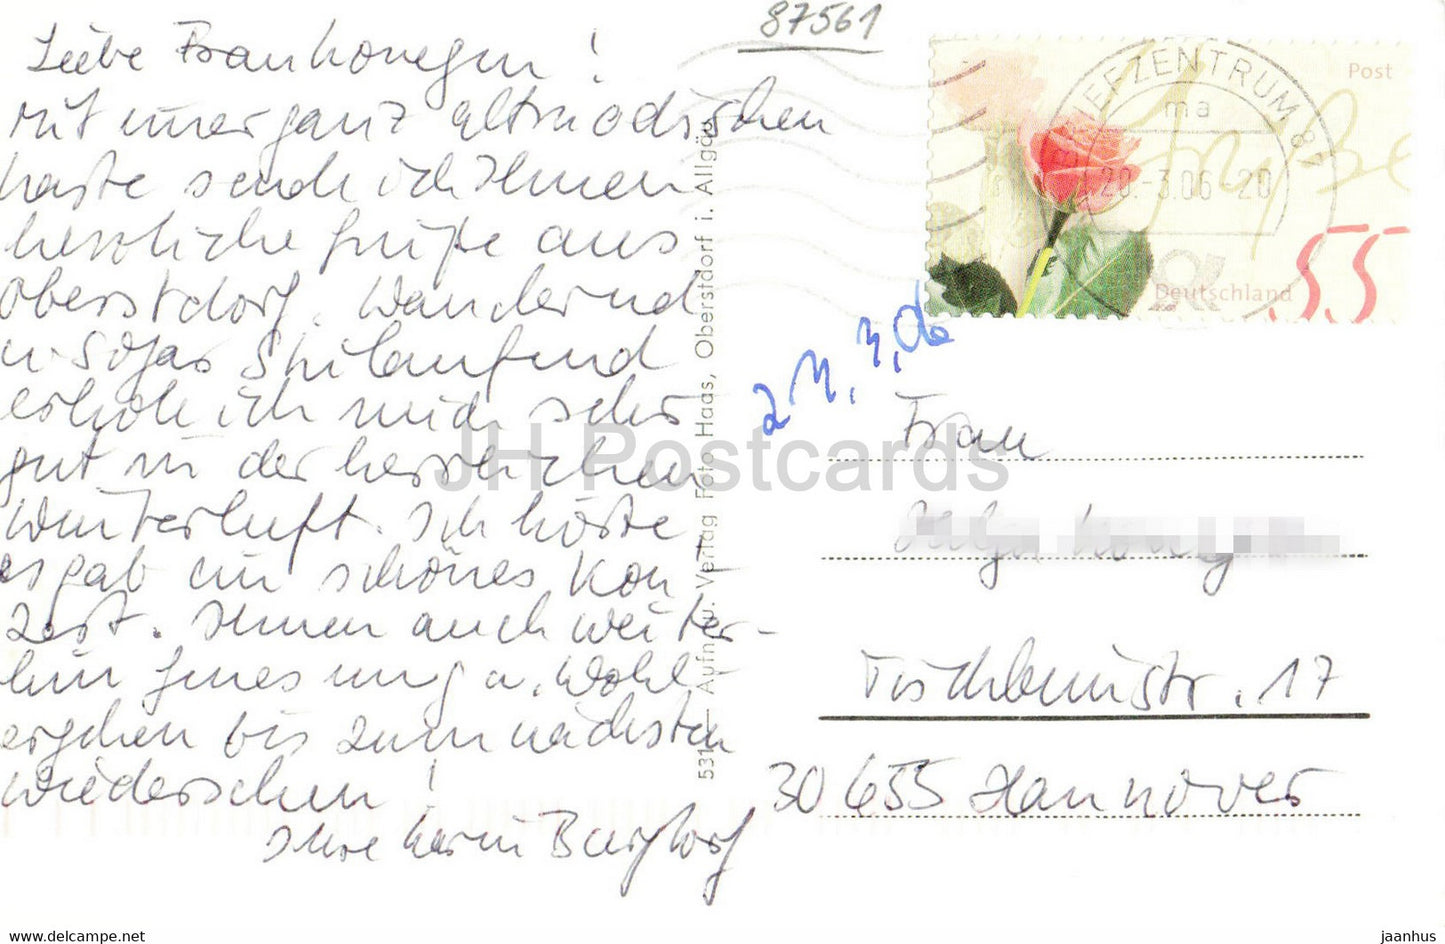 87561
Liebe Frau Konegen !
Mit einer ganz altmodischen
Karte sende ich Ihnen
herzliche Grüße aus
Oberstdorf. Wandernd
u. sogar Skilaufend
erhole ich mich sehr
gut in der herrlichen
Winterluft. Ich hörte
es gab ein schönes Kon
zert. Ihnen auch weiter-
hin Genesung u. Wohl
ergehen bis zum nächsten
Wiedersehen !
Ihre Karin Burgdorf
531 Aufn. u. Verlag Foto Haas, Oberstdorf i. Allgäu
BRIEFZENTRUM 87
ma
20.-3.06-20
Post
Grüße
55
Deutschland
Frau
Helga
Tischbeinstr. 17
30655 Hannover
JH Postcards
www.hippostcard.com
jaanhus